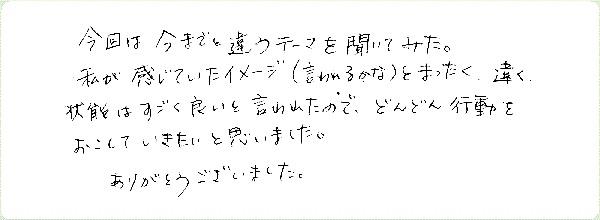 今回は今までと違うテーマを聞いてみた。
私が感じていたイメージ(言われるかな)とまったく違く、
状態はすごく良いと言われたので、どんどん行動を
おこしていきたいと思いました。
ありがとうございました。